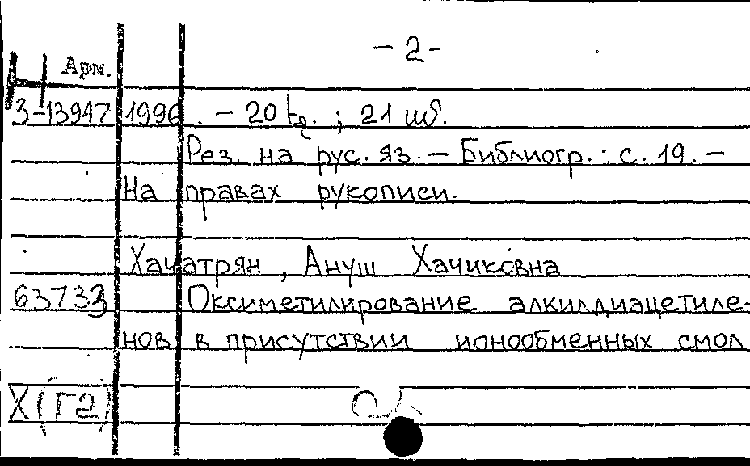 - 2 -
Арм.
3-13947 1996. - 20 էջ. ; 21 սմ.
Рез. на рус. яз. - Библиогр.: с. 19. -
На правах рукописи.
Хачатрян, Ануш Хачиковна
63733 Оксиметилирование алкилдиацетиле-
нов в присутствии ионообменных смол
Х(Г2)